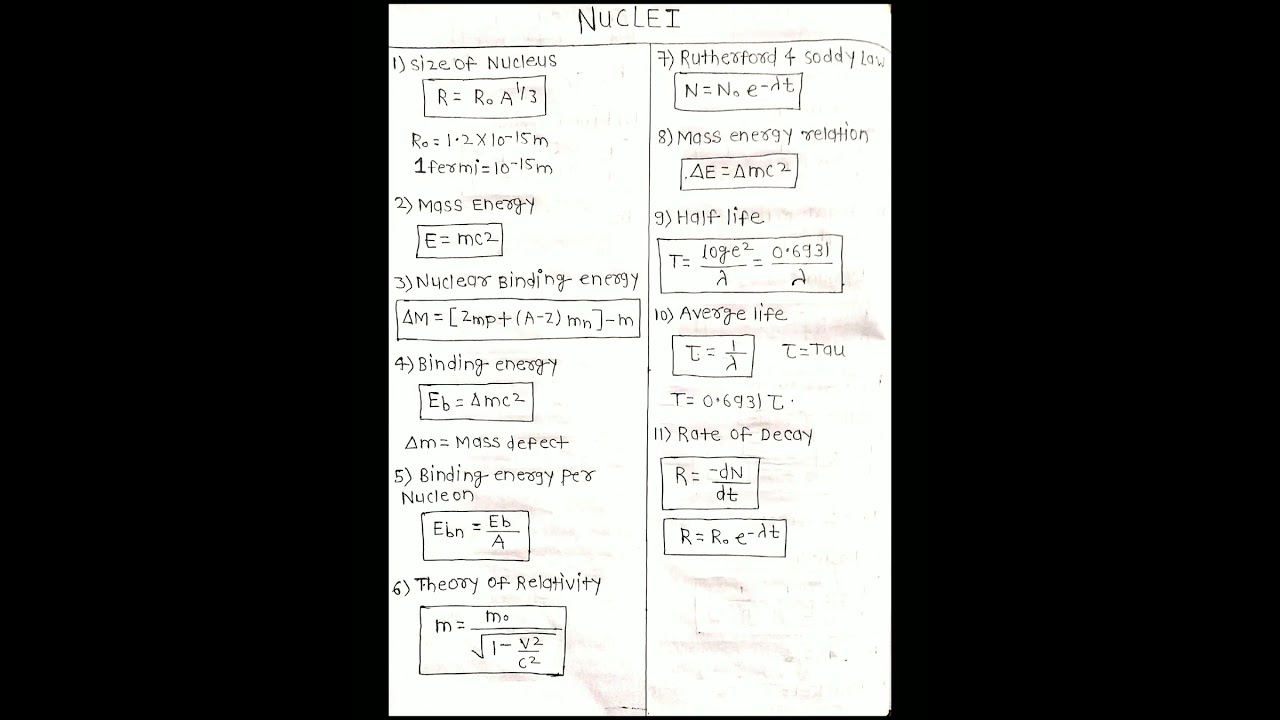 NUCLEI
1) Size of Nucleus
R = R₀ A^1/3
R₀ = 1.2 X 10⁻¹⁵m
1 fermi = 10⁻¹⁵m
2) Mass Energy
E = mc²
3) Nuclear Binding energy
ΔM = [Zmp + (A-Z) mn] - m
4) Binding energy
Eb = Δmc²
Δm = Mass defect
5) Binding energy per
Nucleon
Ebn = Eb/A
6) Theory of Relativity
m = m₀/√(1 - v²/c²)
7) Rutherford & Soddy Law
N = N₀ e^-λt
8) Mass energy relation
ΔE = Δmc²
9) Half life
T = loge²/λ = 0.6931/λ
10) Averge life
τ = 1/λ τ = Tau
T = 0.6931 τ.
11) Rate of Decay
R = -dN/dt
R = R₀ e^-λt